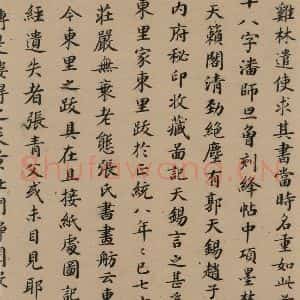 雞林遺其書當時名重如此
十八字潘師旦曾刻絳帖中項墨林
天籟閣清勁絕塵有郭天錫趙子
內府秘印收藏圖記天錫言之甚
東里家東里跋於正統八年已七
莊嚴無衰老態張氏書畫舫云東
今東里之跋具在且接紙處圖記
經遺失者張青父或未目見耶
Shufawang.cn